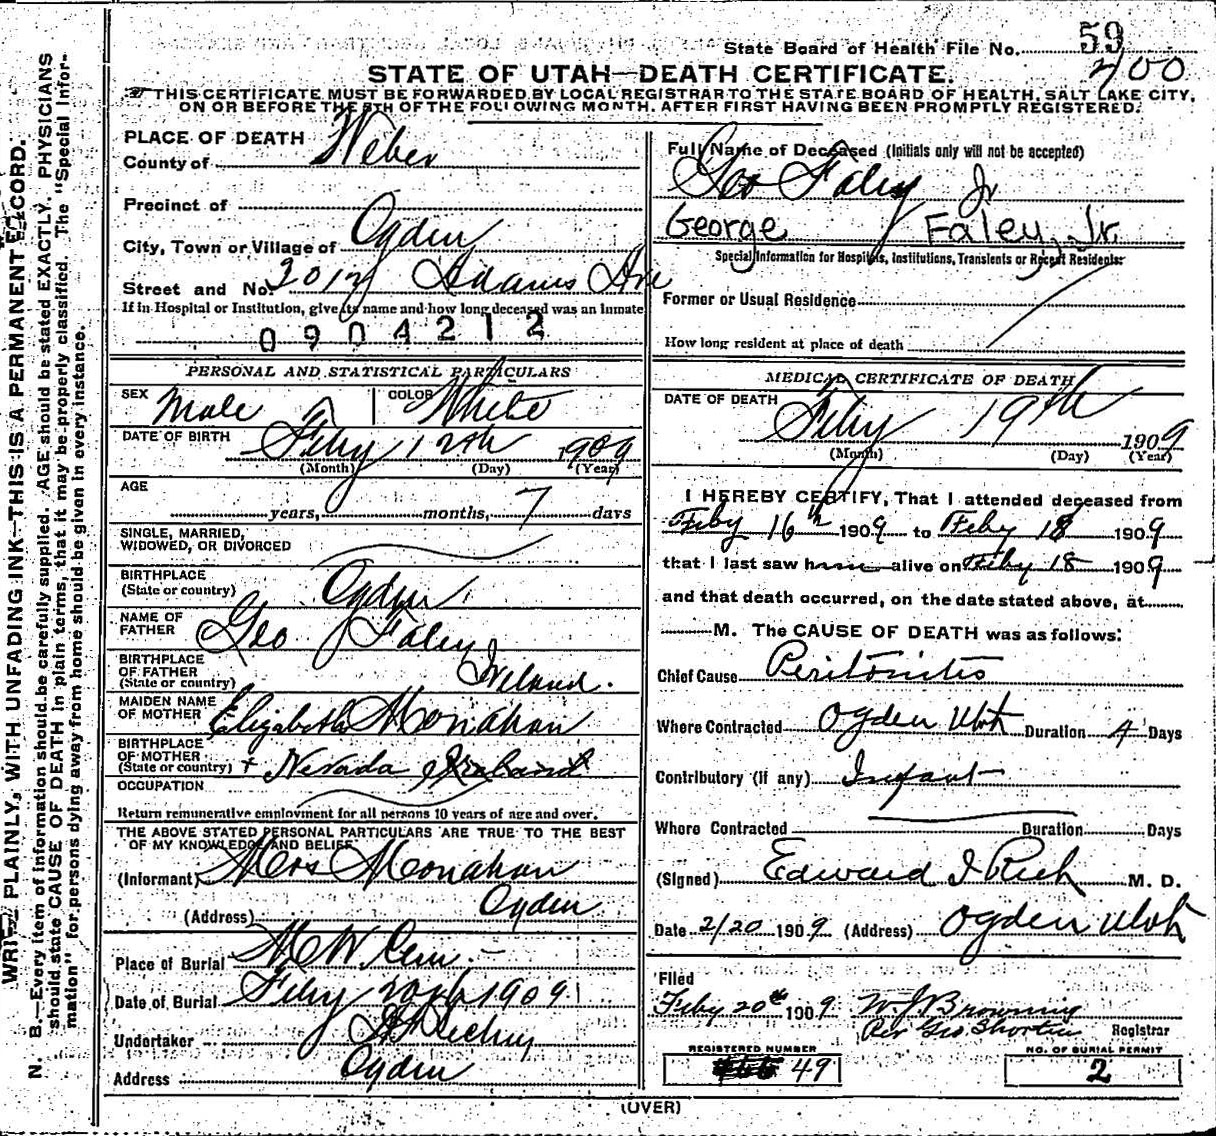 State Board of Health File No. 53
200
STATE OF UTAH—DEATH CERTIFICATE.
THIS CERTIFICATE MUST BE FORWARDED BY LOCAL REGISTRAR TO THE STATE BOARD OF HEALTH, SALT LAKE CITY,
ON OR BEFORE THE 5TH OF THE FOLLOWING MONTH, AFTER FIRST HAVING BEEN PROMPTLY REGISTERED.
WRITE PLAINLY, WITH UNFADING INK—THIS IS A PERMANENT RECORD.
N. B.—Every item of information should be carefully supplied. AGE should be stated EXACTLY. PHYSICIANS
should state CAUSE OF DEATH in plain terms, that it may be properly classified. The "Special Infor-
mation" for persons dying away from home should be given in every instance.
PLACE OF DEATH
County of Weber
Precinct of
City, Town or Village of Ogden
Street and No. Adams Ave
If in Hospital or Institution, give its name and how long deceased was an inmate
0904212
PERSONAL AND STATISTICAL PARTICULARS
SEX Male COLOR White
DATE OF BIRTH Feby 12th 1909
(Month) (Day) (Year)
AGE
years, months, 7 days
SINGLE, MARRIED,
WIDOWED, OR DIVORCED
BIRTHPLACE
(State or country) Ogden
NAME OF
FATHER Geo Faley
BIRTHPLACE
OF FATHER
(State or country) Ireland.
MAIDEN NAME
OF MOTHER Elizabeth Monahan
BIRTHPLACE
OF MOTHER
(State or country) + Nevada Ireland
OCCUPATION
Return remunerative employment for all persons 10 years of age and over.
THE ABOVE STATED PERSONAL PARTICULARS ARE TRUE TO THE BEST
OF MY KNOWLEDGE AND BELIEF
(Informant) Mrs Monahan
(Address) Ogden
Place of Burial Cem.
Date of Burial Feby 20th 1909
Undertaker
Address Ogden
Full Name of Deceased (Initials only will not be accepted)
Geo Faley Jr
George Faley, Jr.
Special Information for Hospitals, Institutions, Transients or Recent Residents:
Former or Usual Residence
How long resident at place of death
MEDICAL CERTIFICATE OF DEATH
DATE OF DEATH
Feby 19th 1909
(Month) (Day) (Year)
I HEREBY CERTIFY, That I attended deceased from
Feby 16th 1909 to Feby 18 1909
that I last saw him alive on Feby 18 1909
and that death occurred, on the date stated above, at
M. The CAUSE OF DEATH was as follows:
Chief Cause Peritonitis
Where Contracted Ogden Utah Duration 4 Days
Contributory (if any) Infant
Where Contracted Duration Days
(Signed) Edward I Rich M. D.
Date 2/20 1909 (Address) Ogden Utah
Filed
Feby 20th 1909 W. J. Browning
Per Geo Shorten Registrar
REGISTERED NUMBER
49
NO. OF BURIAL PERMIT
2
(OVER)